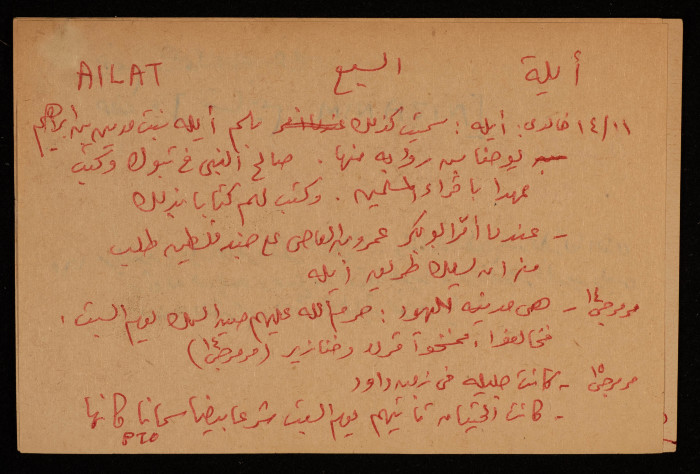 أيلة السبع AILAT
١٤/١١ خالدي: أيله: سميت كذلك باسم أيله بنت مدين بن ابراهيم
يوحنا بن رؤبه منها. صالح النبي في تبوك وكتب
عهدا باقراء المسلمين. وكتب لهم كتابا بذلك
- عندما أمّر ابو بكر عمرو بن العاصي على جند فلسطين طلب
منه ان يسلك طريق أيله
مرمرجي ١٤ - هي مدينة لليهود: حرم الله عليهم صيد السمك يوم السبت.
فخالفوا، فمسخوا قردة وخنازير (مرمرجي ١٤)
مرمرجي ١٥ - كانت جليله في زمن داود
- كانت الحيتان تأتيهم يوم السبت شرعا بيضا سمانا كأنها
PTO